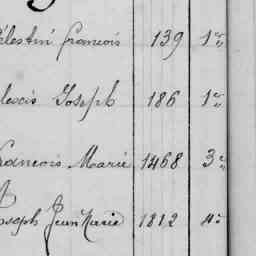 élestin François 139 1er
lexis Joseph 186 1er
rancois Marie 1468 3e
oseph Jean Marie 1812 4e